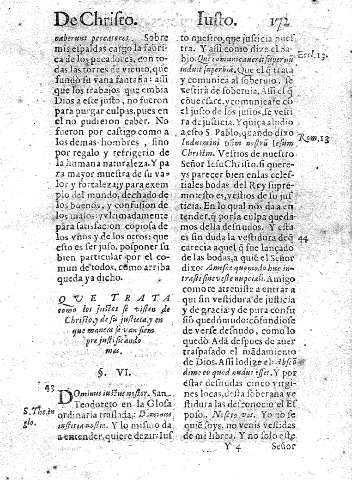 De Christo. Iusto. 172
uaberunt peccatores. Sobre
mis espaldas cargo la fabri-
ca de los pecadores, con to-
das las torres de viento, que
fundò su vana fantasia: assi
que los trabajos que embia
Dios a este justo, no fueron
para purgar culpas, pues en
el no pudieron caber. No
fueron por castigo como a
los demas hombres, sino
por regalo y refrigerio de
la humana naturaleza. Y pa
ra mayor muestra de su va-
lor y fortaleza; y para exemplo
del mundo, dechado de
los buenos, y confusion de
los malos: y vltimamente
para satisfacion copiosa de
los vnos y de los otros: que
esto es ser justo, posponer su
bien particular por el co-
mun de todos, como arriba
queda ya dicho.
QVE TRATA
como los justos se visten de
Christo, y de su justicia, y en
que manera se van siem
pre justificando
mas.
§. VI.
43
Dominus iustus noster. San
Teodoreto en la Glosa
ordinaria traslada: Dominus
iustitia noster. Y lo mismo da
a entender, quiere dezir: Ius
S. Tho. in
glo.
to nuestro, que justicia nues
tra. Y assi como dize el sa-
bio: Qui communicauerit superbo
induet superbiã. Que el q̃ trata
y comunica al soberuio, se
vestirà de soberuia. Assi el q̃
cõuersare, y comunicare cõ
el justo de los justos, se vesti
ra de justicia. Y quiça aludio
a esto S. Pablo, quando dixo
Induimini dominum nostrũ Iesum
Christum. Vestios de nuestro
Señor Iesu Christo, si quereys
parecer bien en las celes-
tiales bodas del Rey supre-
mo: esto es, vestios de su jus
ticia. En lo qual nos da a en
tender, q̃ por la culpa queda
mos della desnudos. Y esta
es sin duda la vestidura de q̃
carecia aquel q̃ fue lançado
de las bodas, a quiẽ el Señor
dixo: Amice quomodo huc in-
trasti sine veste nuptiali. Amigo
como te atreuiste a entrar a
qui sin vestidura de justicia
y de gracia; y de pura confu
siõ quedò mudo: cõfundiose
de verse desnudo, como lo
quedò Adã despues de auer
traspasado el mãdamiento
de Dios. Assi lo dize el: Abscõ
dime eo quod nudus esset. Y por
estar desnudas cinco virgi-
nes locas, desta soberana ve
stidura las desconocio el Es
poso. Nescio vos. Yo no se
quiẽ soys, no venis vestidas
de mi librea. Y no solo este
Eccl. 13.
Rom. 13
44
Y 4 Señor